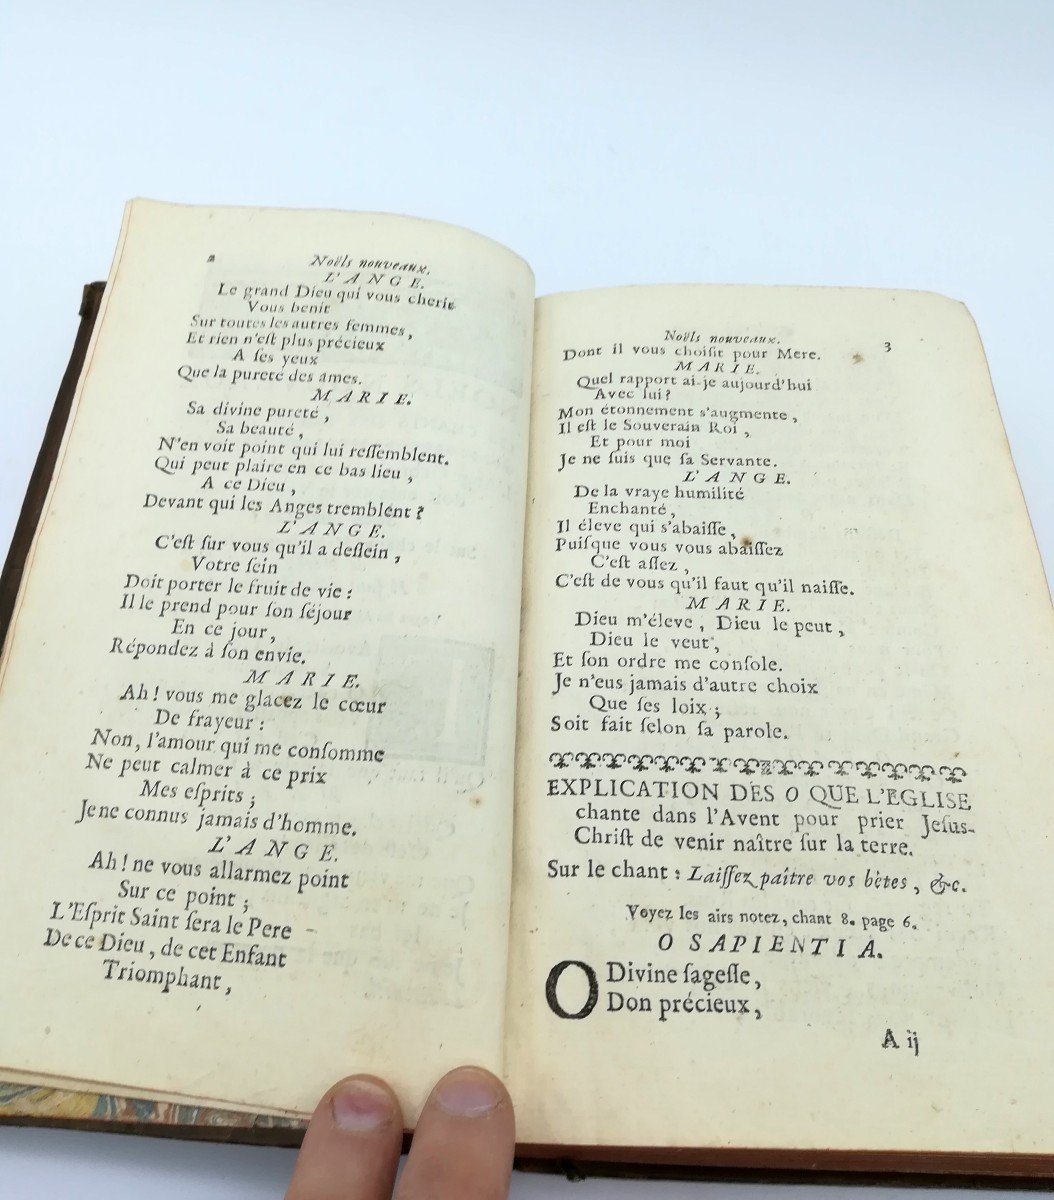 2 Noëls nouveaux.
L'ANGE.
Le grand Dieu qui vous cherit
Vous benit
Sur toutes les autres femmes,
Et rien n'eſt plus précieux
A ſes yeux
Que la pureté des ames.
MARIE.
Sa divine pureté,
Sa beauté,
N'en voit point qui lui reſſemblent.
Qui peut plaire en ce bas lieu,
A ce Dieu,
Devant qui les Anges tremblent?
L'ANGE.
C'eſt ſur vous qu'il a deſſein,
Votre ſein
Doit porter le fruit de vie:
Il le prend pour ſon ſéjour
En ce jour,
Répondez à ſon envie.
MARIE.
Ah! vous me glacez le cœur
De frayeur:
Non, l'amour qui me conſomme
Ne peut calmer à ce prix
Mes eſprits;
Je ne connus jamais d'homme.
L'ANGE.
Ah! ne vous allarmez point
Sur ce point;
L'Eſprit Saint ſera le Pere
De ce Dieu, de cet Enfant
Triomphant,
Noëls nouveaux. 3
Dont il vous choiſit pour Mere.
MARIE.
Quel rapport ai-je aujourd'hui
Avec lui?
Mon étonnement s'augmente,
Il eſt le Souverain Roi,
Et pour moi
Je ne ſuis que ſa Servante.
L'ANGE.
De la vraye humilité
Enchanté,
Il éleve qui s'abaiſſe,
Puiſque vous vous abaiſſez
C'eſt aſſez,
C'eſt de vous qu'il faut qu'il naiſſe.
MARIE.
Dieu m'éleve, Dieu le peut,
Dieu le veut,
Et ſon ordre me conſole.
Je n'eus jamais d'autre choix
Que ſes loix;
Soit fait ſelon ſa parole.
EXPLICATION DES O QUE L'EGLISE
chante dans l'Avent pour prier Jeſus-
Chriſt de venir naître ſur la terre.
Sur le chant: Laiſſez paître vos bêtes, &c.
Voyez les airs notez, chant 8. page 6.
O SAPIENTIA.
O Divine ſageſſe,
Don précieux,
A ij